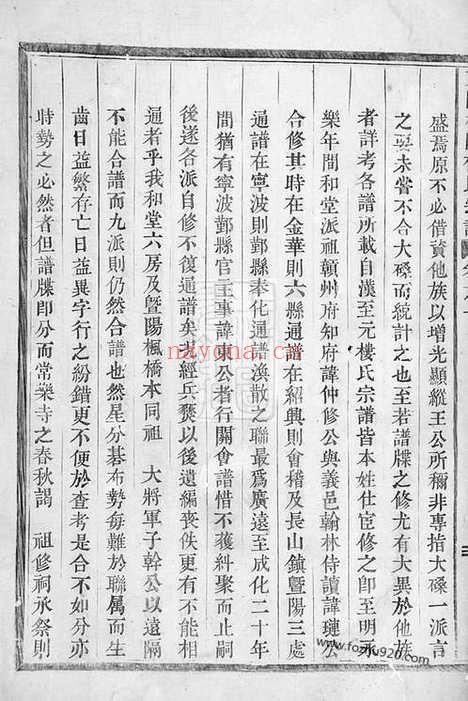 盛焉原不必借資他族以增光顯縱王公所稱非專指大磉一派言
之要未嘗不合大磉而統計之也至若譜牒之修尤有大異於他族
者詳考各譜所載自漢至元樓氏宗譜皆本姓仕宦修之即至明永
樂年間和堂派祖贛州府知府諱仲修公與義邑翰林侍讀諱璉公
合修其時在金華則六縣通譜在紹興則會稽及長山鎮暨陽三處
通譜在寧波則鄞縣奉化通譜渙散之聯最為廣遠至成化二十年
間猶有寧波鄞縣官主事諱東公者行關會譜惜不獲糾聚而止嗣
後遂各派自修不復通譜矣若經兵燹以後遺編喪佚更有不能相
通者乎我和堂六房及暨陽楓橋本同祖 大將軍子幹公以遠隔
不能合譜而九派則仍然合譜也然星分碁布勢每難於聯属而生
齒日益繁存亡日益異字行之紛錯更不便於查考是合不如分亦
時勢之必然者但譜牒即分而常樂寺之春秋謁 祖修祠承祭則
nayona.cn
www.fozhu920.com